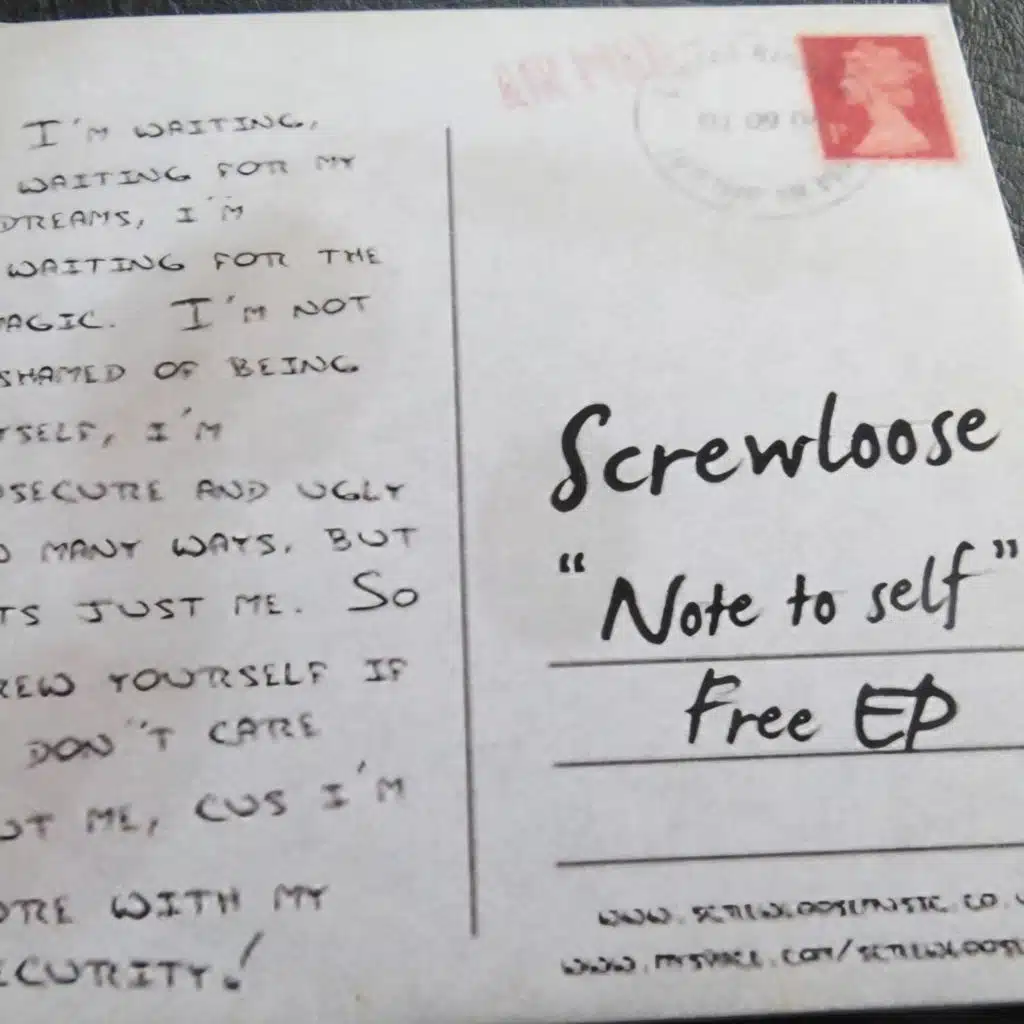 I'M WAITING,
WAITING FOR MY
DREAMS, I'M
WAITING FOR THE
AGIC. I'M NOT
SHAMED OF BEING
YSELF, I'M
SECURE AND UGLY
MANY WAYS, BUT
TS JUST ME. SO
REW YOURSELF IF
DON'T CARE
UT ME, CUS I'M
ORE WITH MY
ECURITY!
Screwloose
"Note to self"
Free EP
WWW.SCREWLOOSEMUSIC.CO.
WWW.MYSPACE.COM/SCREWLOOSE